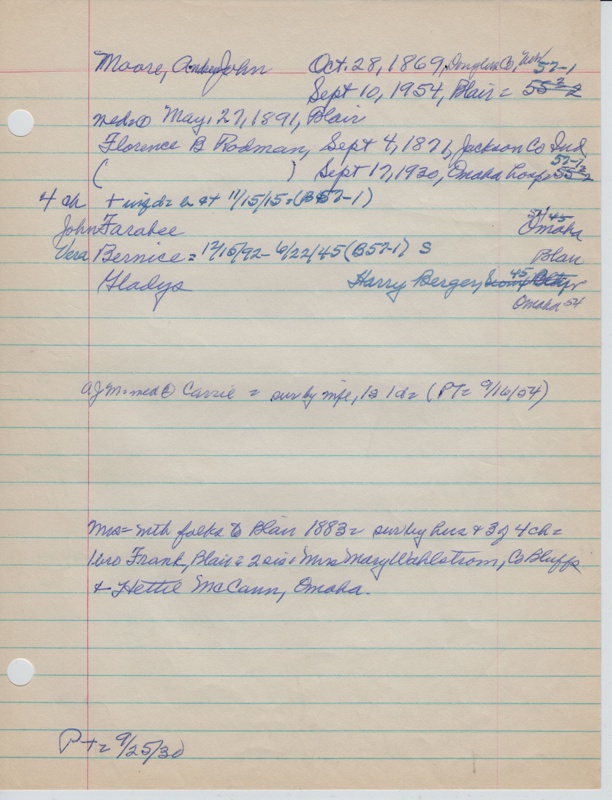 Moore, John Oct. 28, 1869, Douglas Co, Neb 57-1
Sept 10, 1954, Blair = 55-2
med① May 27, 1891, Blair
Florence B Rodman, Sept 4, 1871, Jackson Co Ind 57-1
( ) Sept 17, 1930, Omaha hosp = 55-2
4 ch + infd = b & d 11/15/15 = (B57-1)
John Farabee 54/45 Omaha
Vera Bernice = 12/15/92 - 6/22/45 (B57-1) S Blair
Gladys Harry Berger, 45
Omaha 54
AJM = med② Carrie = sur by wife, 1s 1d = (PT = 9/16/54)
Mrs = with folks to Blair 1883 = sur by hus & 3 of 4 ch =
1bro Frank, Blair = 2 sis = Mrs Mary Wahlstrom, Co Bluffs
& Hettie McCann, Omaha.
PT = 9/25/30